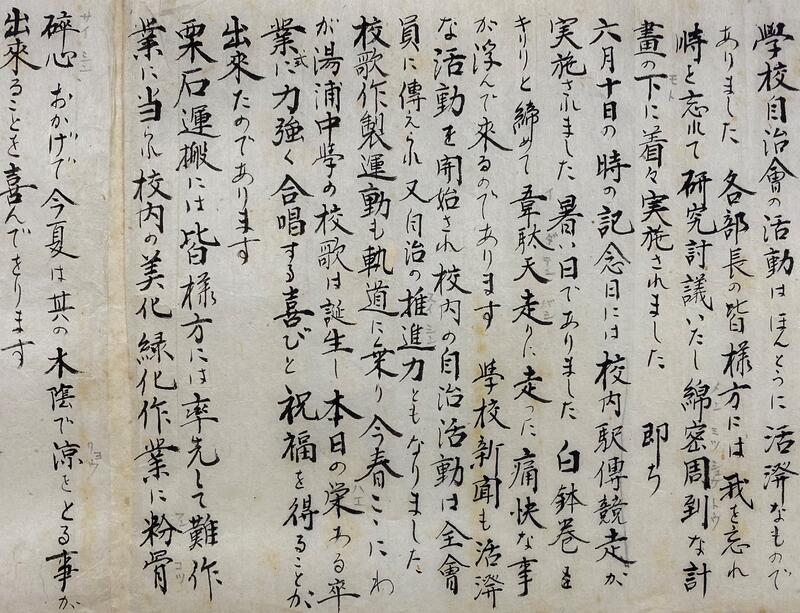 學校自治會の活動はほんとうに活潑なもので
ありました 各部長の皆様方には我を忘れ
時を忘れて研究討議いたし綿密周到な計
畫の下に着々実施されました 即ち
六月十日の時の記念日には校内駅傳競走が
実施されました 暑い日でありました 白鉢巻を
きりりと締めて韋駄天走りに走った痛快な事
が浮んで来るのであります 學校新聞も活潑
な活動を開始され校内の自治活動は全會
員に傳えられ又自治の推進力ともなりました
校歌作製運動も軌道に乗り今春こゝにわ
が湯浦中學の校歌は誕生し本日の栄ある卒
業式に力強く合唱する喜びと祝福を得ることが
出来たのであります
栗石運搬には皆様方には率先して難作
業に当られ校内の美化緑化作業に粉骨
碎心 おかげで今夏は其の木陰で涼をとる事が
出來ることを喜んでをります